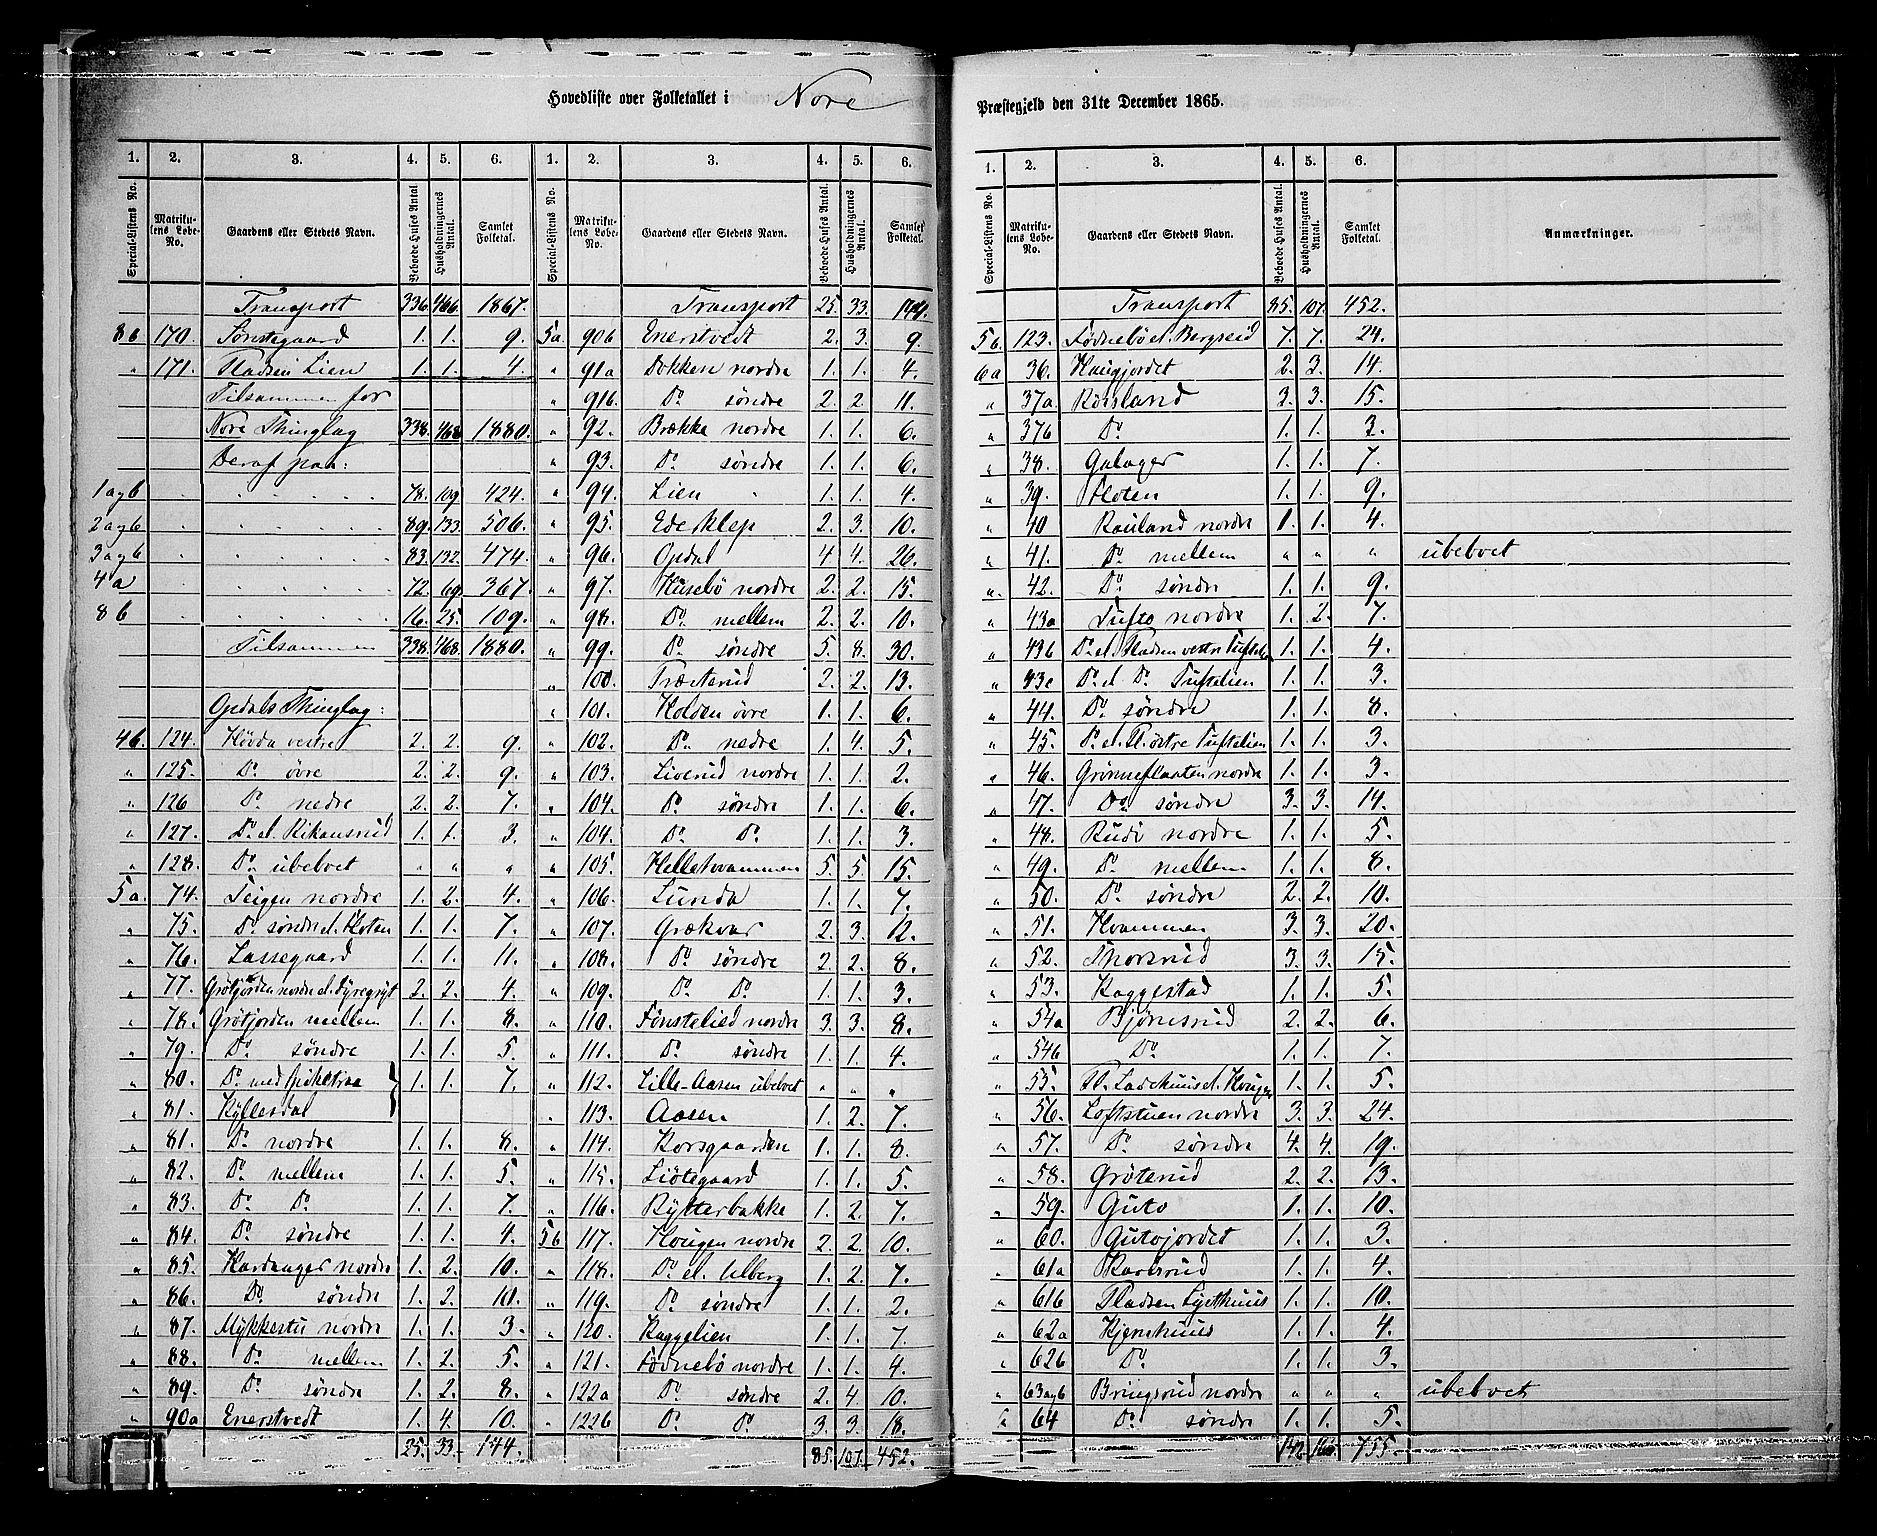 Hovedliste over Folketallet i Nore
Præstegjeld den 31te December 1865.
1. 2. 3. 4. 5. 6. 1. 2. 3. 4. 5. 6.
Special-Listens No. Matrikulens Løbe-No. Gaardens eller Stedets Navn. Beboede Huses Antal. Husholdningernes Antal. Samlet Folketal. Special-Listens No. Matrikulens Løbe-No. Gaardens eller Stedets Navn. Beboede Huses Antal. Husholdningernes Antal. Samlet Folketal.
Transport 336. 466. 1867.
8b 170. Sønstegaard 1. 1. 9.
" 171. Pladsen Lien 1. 1. 4.
Tilsammen for
Nore Thinglag 338. 468. 1880.
Deraf paa:
1 a og b 78. 109. 424.
2 a og b 89. 133. 506.
3 a og b 83. 132. 474.
4 a 72. 69. 367.
8 b 16. 25. 109.
Tilsammen 338. 468. 1880.
Opdals Thinglag:
4b. 124. Hövda vestre 2. 2. 9.
" 125. Do övre 2. 2. 9.
" 126 Do nedre 2. 2. 7.
" 127. Do el. Rikansrud 1. 1. 3.
" 128. Do ubebvet " " "
5a. 74. Teigen nordre 1. 2. 4.
" 75. Do søndre el. Floten 1. 1. 7.
" 76. Lassegaard 1. 1. 11.
" 77. Grötjorden nordre el. Dyregryt 2. 2. 4.
" 78. Grötjorden mellem 1. 1. 8.
" 79. Do söndre 1. 1. 5.
" 80. Do med 1. 1. 7.
" 81. Kyllesdal
" 81. Do nordre 1. 1. 8.
" 82. Do mellem 1. 1. 5.
" 83. Do Do 1. 1. 7.
" 84. Do söndre 1. 1. 4.
" 85. Hardanger nordre 1. 2. 10.
" 86. Do söndre 1. 2. 10.
" 87. Mykkestu nordre 1. 1. 3.
" 88. Do mellem 1. 2. 5.
" 89. Do söndre 1. 2. 8.
" 90a Enerstvedt 1. 4. 10.
25. 33. 144.
Transport 25. 33. 144.
5a 90b Enerstvedt 2. 3. 9.
" 91a Dokken nordre 1. 1. 4.
" 91b. Do søndre 2. 2. 11.
" 92. Brække nordre 1. 1. 6.
" 93. Do søndre 1. 1. 6.
" 94. Lien 1. 1. 4.
" 95. Edesklep 2. 3. 10.
" 96. Opdal 4. 4. 26.
" 97. Husebö nordre 2. 2. 15.
" 98. Do mellem 2. 2. 10.
" 99. Do søndre 5. 8. 30.
" 100. Træeterud 2. 2. 13.
" 101. Holden övre 1. 1. 6.
" 102. Do nedre 1. 4. 5.
" 103. Liverud nordre 1. 1. 2.
" 104. Do söndre 1. 1. 6.
" 104. Do Do 1. 1. 3.
" 105. Helletvammen 5. 5. 15.
" 106. Lunda 1. 1. 7.
" 107. Grækvar 2. 3. 12.
" 108. Do söndre 2. 2. 8.
" 109. Do Do 1. 1. 3.
" 110. Fönstelied nordre 3. 3. 8.
" 111. Do söndre 1. 1. 4.
" 112. Lille-Aasen ubebvet " " "
" 113. Aasen 1. 2. 7.
" 114. Korsgaarden 1. 1. 8.
" 115. Liötegaard 1. 1. 5.
" 116. Rytterbakke 1. 2. 7.
5b 117. Hougen nordre 2. 2. 10.
" 118. Do el. Ulberg 1. 2. 7.
" 119. Do söndre 1. 1. 2.
" 120. Raggelien 1. 1. 7.
" 121. Födnebö nordre 1. 1. 4.
" 122a Do söndre 2. 4. 10.
" 122b Do Do 3. 3. 18.
85. 107. 452.
1. 2. 3. 4. 5. 6.
Special-Listens No. Matrikulens Løbe-No. Gaardens eller Stedets Navn. Beboede Huses Antal. Husholdningernes Antal. Samlet Folketal. Anmærkninger.
Transport 85. 107. 452.
5b. 123. Födnebö el. Bergseid 7. 7. 24.
6a 36. Haugjordet 2. 3. 14.
" 37a Rösland 3. 3. 15.
" 37b Do 1. 1. 3.
" 38. Galager 1. 1. 7.
" 39. Floten 1. 1. 9.
" 40 Rauland nordre 1. 1. 4.
" 41. Do mellem " " " ubebvet
" 42. Do søndre 1. 1. 9.
" 43a Tufto nordre 1. 2. 7.
" 43b Do el. Pladsen vestre Tuftelien 1. 1. 4.
" 43c Do el. Do Tuftelien 1. 1. 3.
" 44. Do söndre 1. 1. 8.
" 45. Do el. Pl. östre Tuftelien 1. 1. 3.
" 46. Grönneflaaten nordre 1. 1. 3.
" 47. Do söndre 3. 3. 14.
" 48. Rudi nordre 1. 1. 5.
" 49. Do mellem 1. 1. 8.
" 50. Do söndre 2. 2. 10.
" 51. Hvammen 3. 3. 20.
" 52. Thorsrud 3. 3. 15.
" 53. Raggestad 1. 1. 5.
" 54a Bjönnsrud 2. 2. 6.
" 54b Do 1. 1. 7.
" 55. Pl. Ladehuus el. Hougen 1. 1. 5.
" 56. Loftstuen nordre 3. 3. 24.
" 57. Do söndre 4. 4. 19.
" 58. Gröterud 2. 2. 13.
" 59. Guto 1. 1. 10.
" 60. Gutojordet 1. 1. 3.
" 61a Karlsrud 1. 1. 4.
" 61b Pladsen Lysthuus 1. 1. 10.
" 62a Kjemhuus 1. 1. 4.
" 62b Do 1. 1. 3.
" 63 a og b Bringsrud nordre " " " ubebvet
" 64 Do söndre 1. 1. 5.
142. 166. 755.